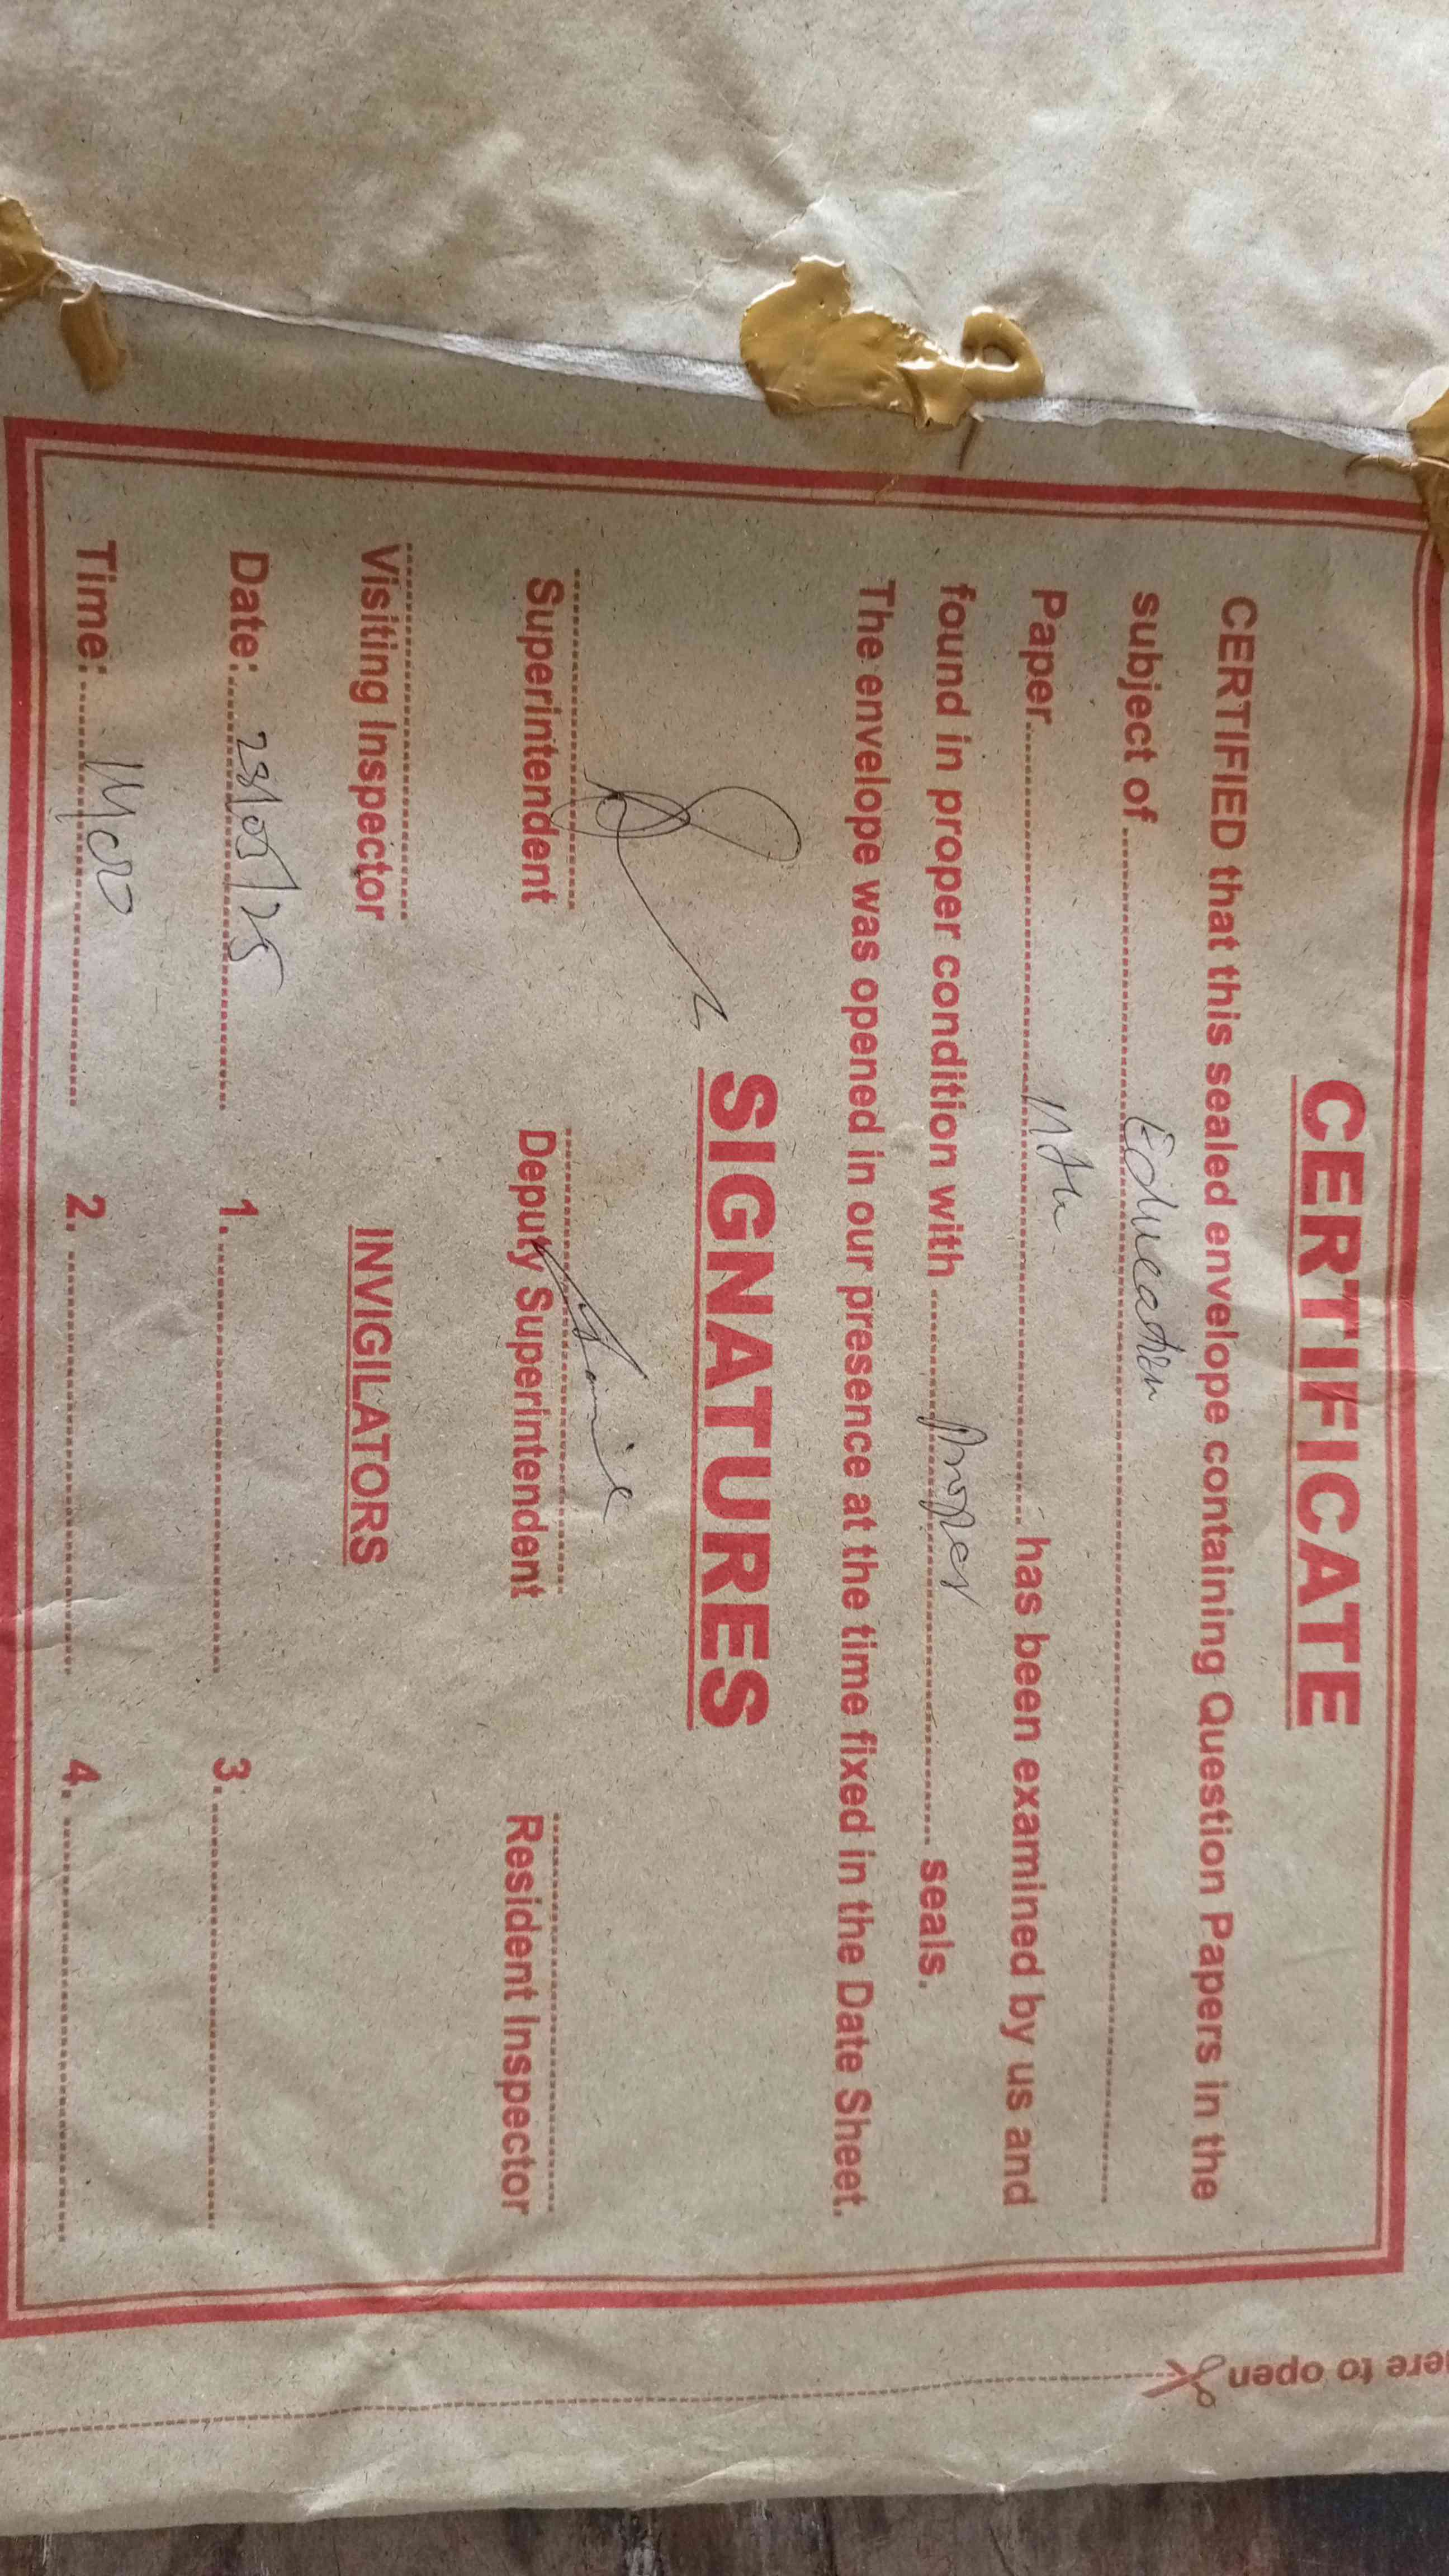 CERTIFICATE
CERTIFIED that this sealed envelope containing Question Papers in the
subject of Education
Paper has been examined by us and
found in proper condition with proper seals.
The envelope was opened in our presence at the time fixed in the Date Sheet.
SIGNATURES
Superintendent Deputy Superintendent Resident Inspector
Visiting Inspector INVIGILATORS
Date: 1. 3.
Time: 2. 4.
ere to open